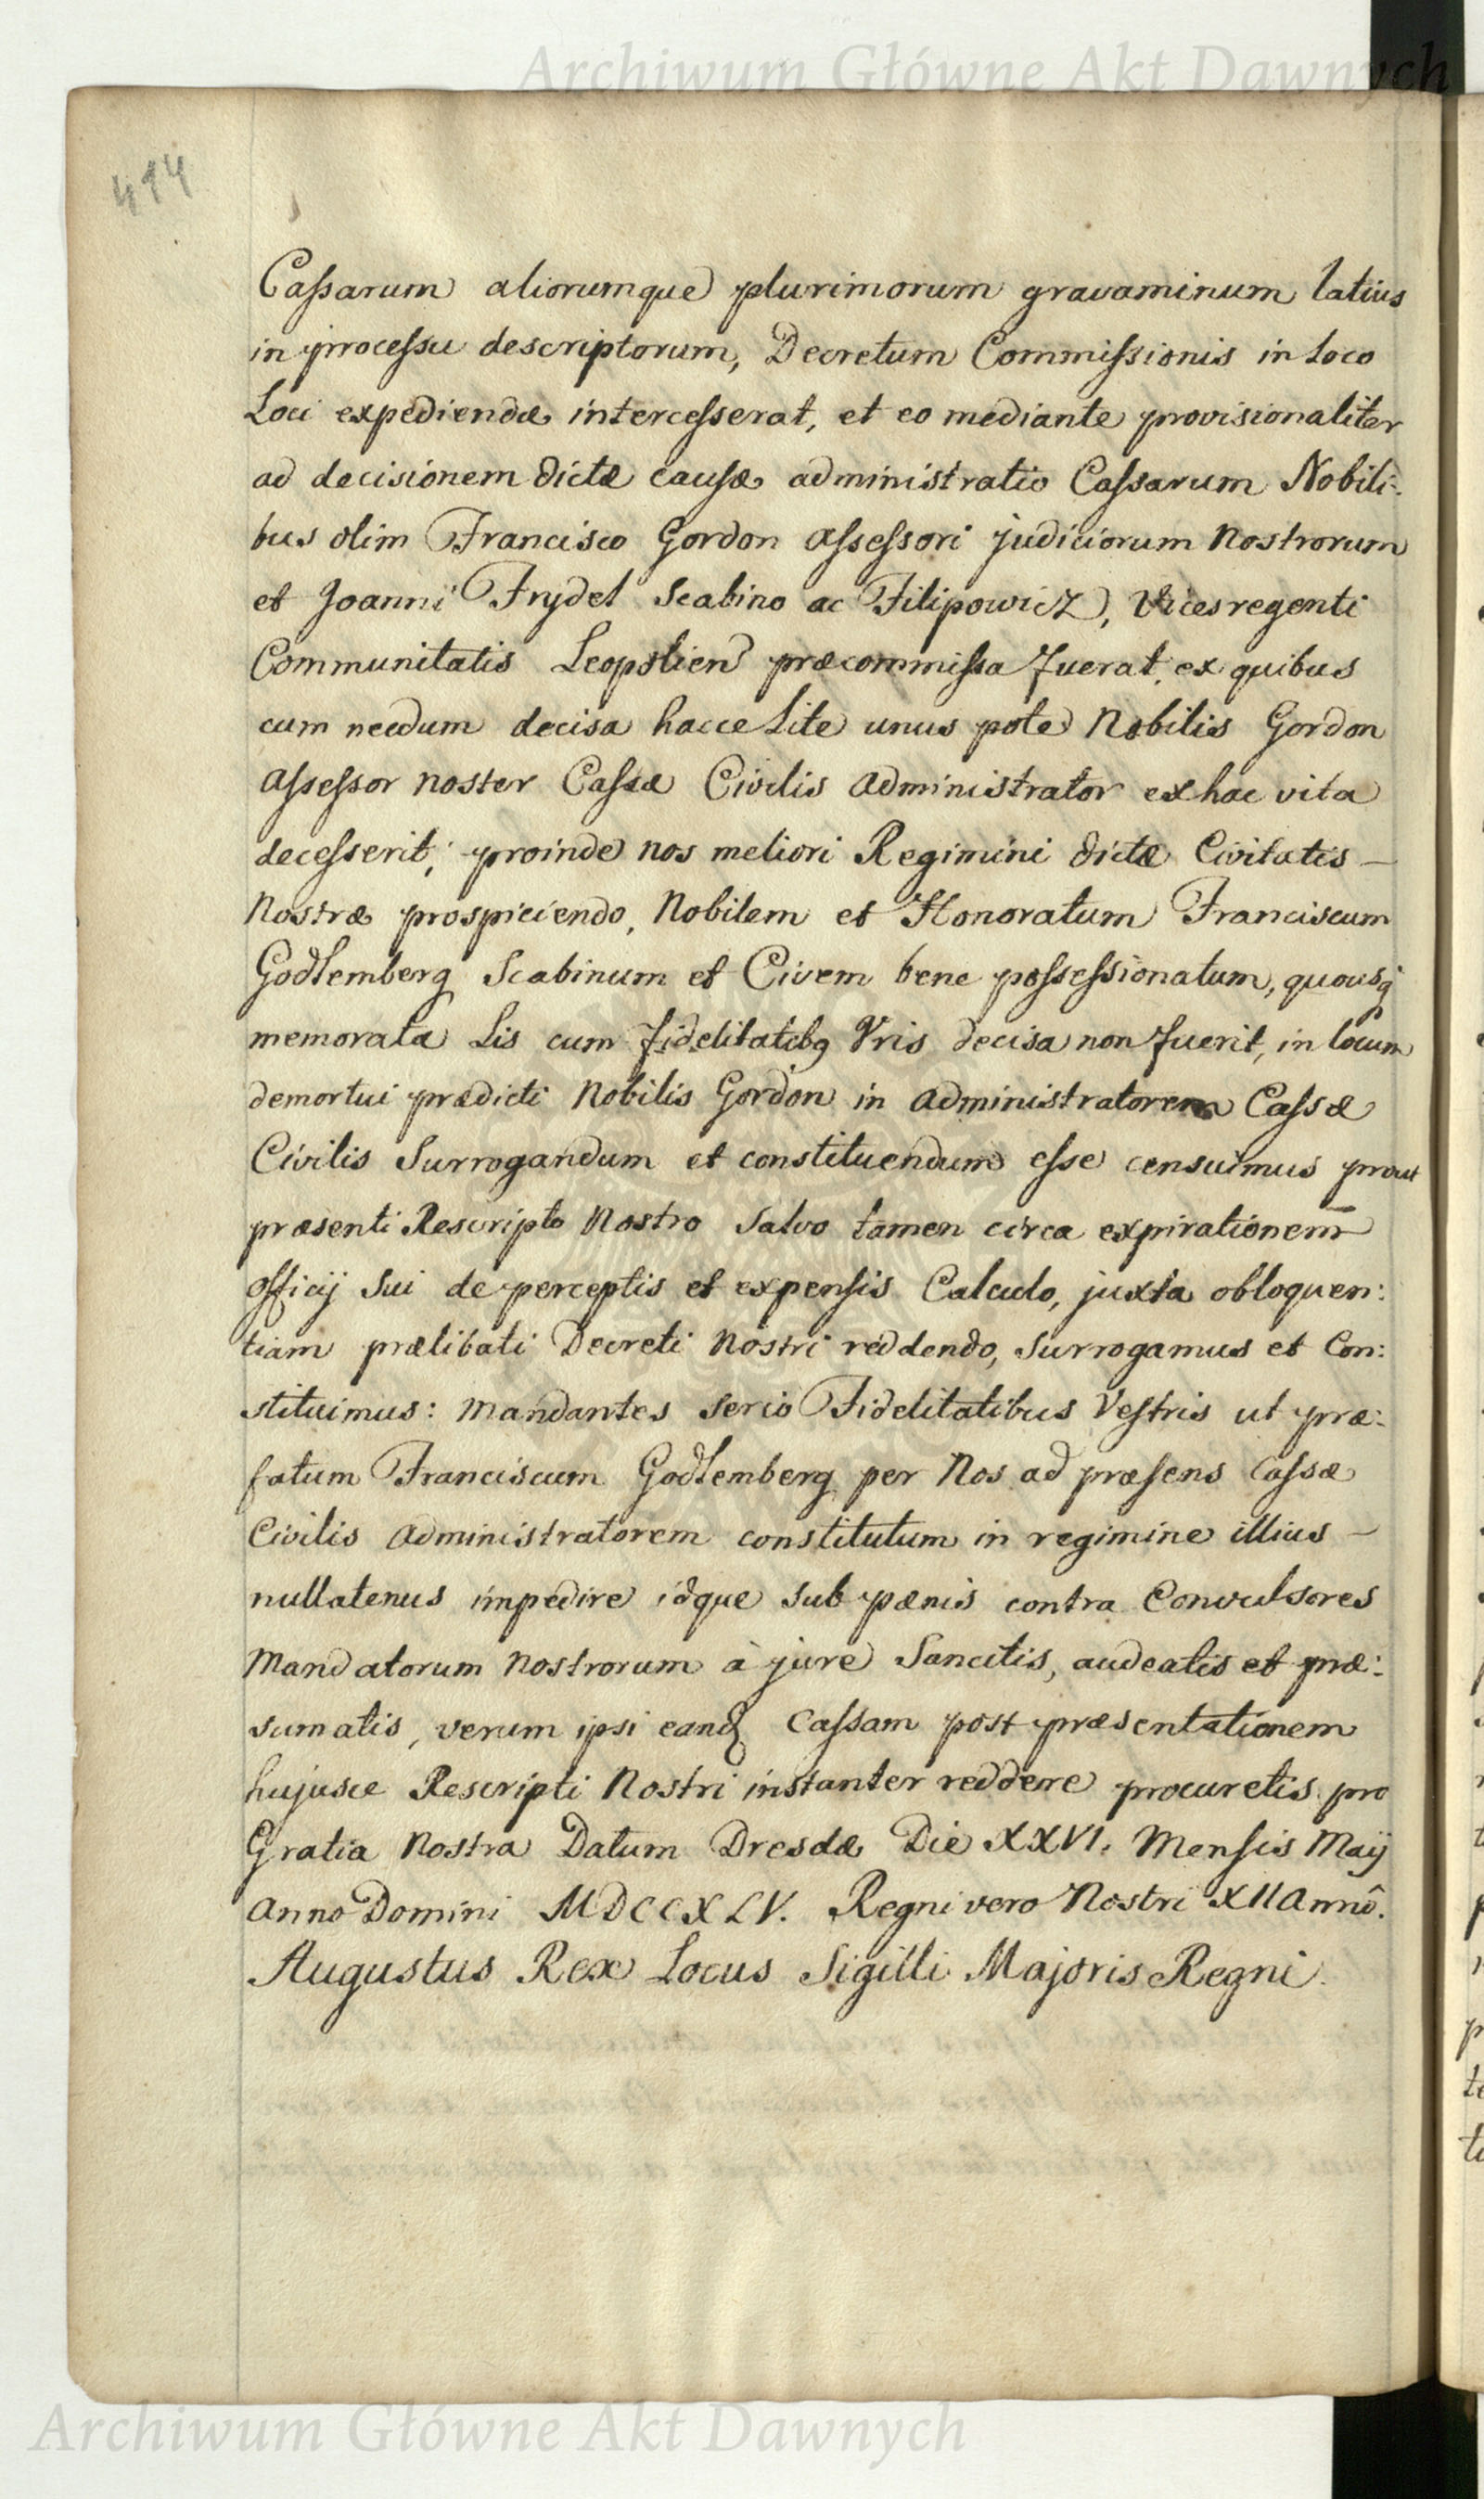 Archiwum Główne Akt Dawnych
414
Cassarum aliorumque plurimorum gravaminum latius
in processu descriptorum, Decretum Commissionis in loco
Loci expediendæ intercesserat, et eo mediante provisionaliter
ad decisionem dictæ causæ administratio Cassarum Nobili-
bus olim Francisco Gordon Assessori judiciorum Nostrorum
et Joanni Frydel Scabino ac Filipowicz, Vicesregenti
Communitatis Leopolien præcommissa fuerat, ex quibus
cum necdum decisa hacce Lite unus pote Nobilis Gordon
Assessor noster Cassæ Civilis Administrator ex hac vita
decesserit; proinde nos meliori Regimini dictæ Civitatis –
Nostræ prospiciendo, Nobilem et Honoratum Franciscum
Godtemberg Scabinum et Civem bene possessionatum, quousq
memorata Lis cum fidelitatibq Vris decisa non fuerit, in locum
demortui prædicti Nobilis Gordon in Administratorem Cassæ
Civilis Surrogandum et constituendum esse censuimus prout
præsenti Rescripto Nostro Salvo tamen circa expirationem
officij Sui de perceptis et expensis Calculo, juxta obloquen:
tiam prælibati Decreti Nostri reddendo, Surrogamus et Con:
stituimus: Mandantes Serio Fidelitatibus Vestris ut præ:
fatum Franciscum Godtemberg per Nos ad præsens Cassæ
Civilis Administratorem constitutum in regimine illius –
nullatenus impedire idque Sub pænis contra Convulsores
Mandatorum Nostrorum à jure Sancitis, audeatis et præ:
sumatis, verum ipsi eand Cassam post præsentationem
hujusce Rescripti Nostri instanter reddere procuretis pro
Gratia Nostra Datum Dresdæ Die XXVI. Mensis Maij
Anno Domini MDCCXLV. Regni vero Nostri XII Annô.
Augustus Rex Locus Sigilli Majoris Regni.
Archiwum Główne Akt Dawnych